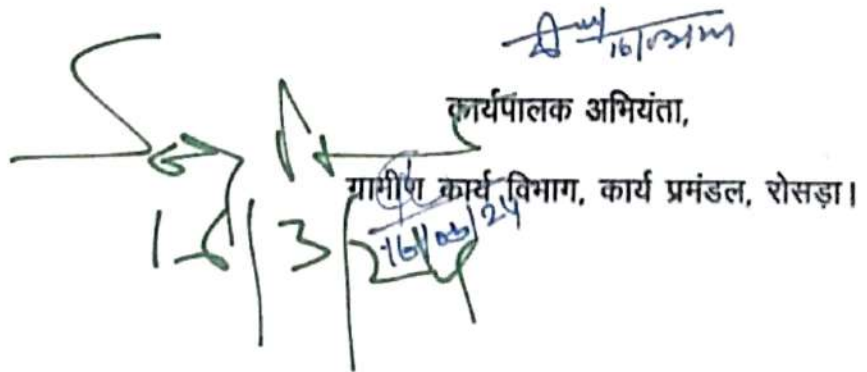 16/03/24
कार्यपालक अभियंता,
ग्रामीण कार्य विभाग, कार्य प्रमंडल, रोसड़ा।
16/03/24
16/3/24